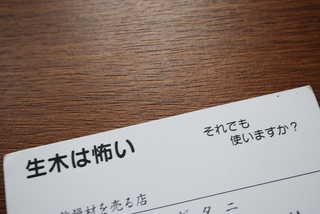 生木は怖い
それでも
使いますか?
乾燥材を売る店